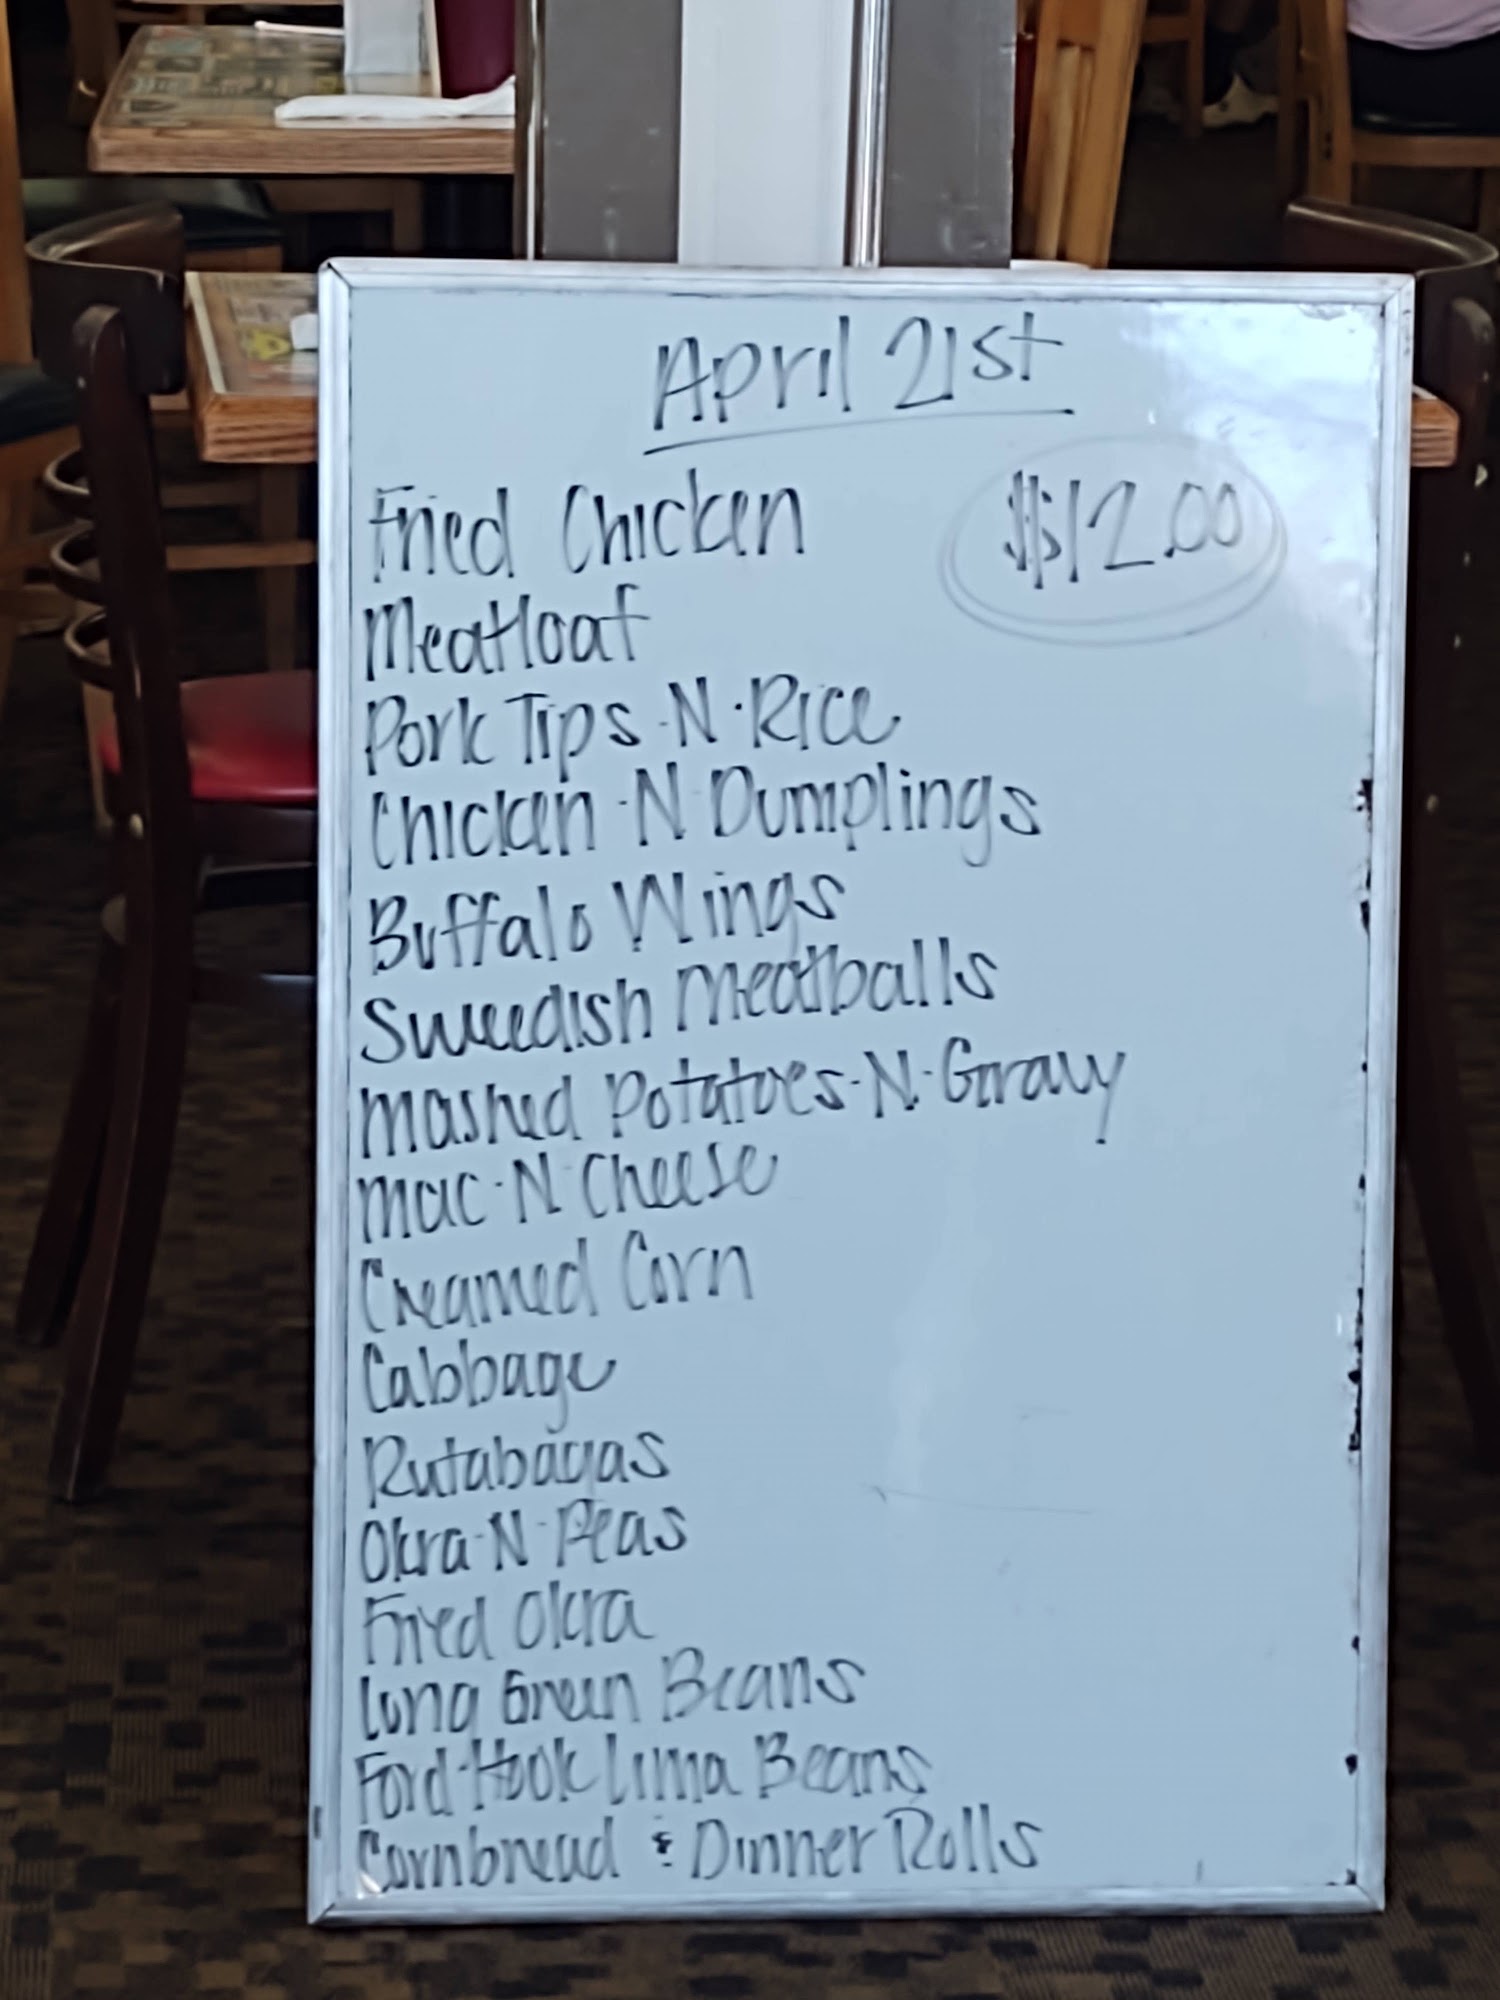 April 21st
Fried Chicken $12.00
Meatloaf
Pork Tips-N-Rice
Chicken-N-Dumplings
Buffalo Wings
Sweedish Meatballs
Mashed Potatoes-N-Gravy
Mac-N-Cheese
Creamed Corn
Cabbage
Rutabagas
Okra-N-Peas
Fried Okra
Long Green Beans
Ford-Hook Lima Beans
Cornbread & Dinner Rolls